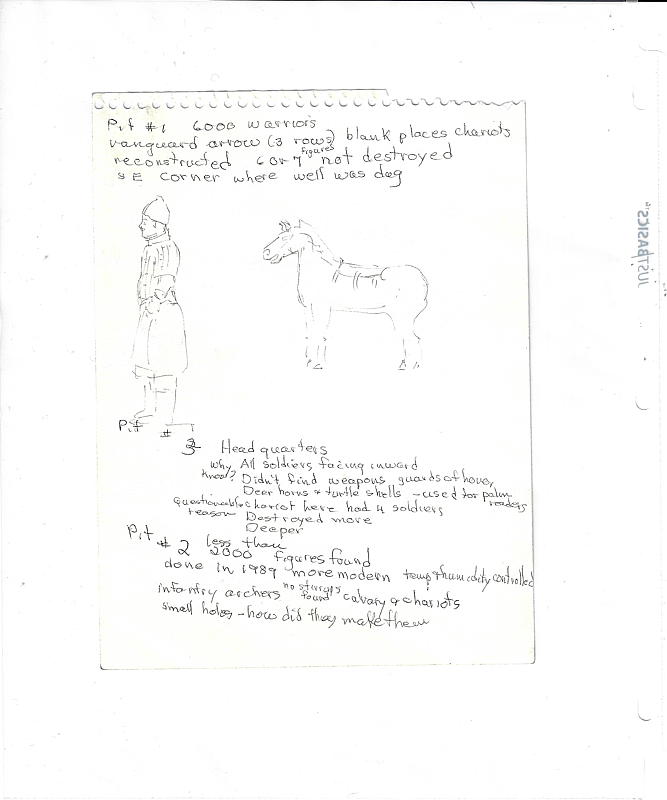 Pit #1 6000 warriors
vanguard arrow (3 rows) blank places chariots
reconstructed 6 or 7 figures not destroyed
SE corner where well was dug
Pit #
3 Headquarters
why All soldiers facing inward
know? Didn't find weapons, guards of honor,
Deer horns & turtle shells - used for palm readers
Questionable chariot here had 4 soldiers
reason Destroyed more
Deeper
Pit
# 2 less than
2000 figures found
done in 1989 more modern temp & humidity controlled
infantry archers no found calvary & chariots
small holes - how did they make them
JUSTBASICS